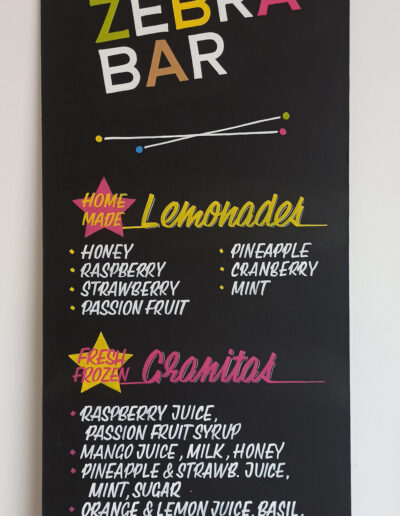 ZEBRA
BAR
HOME
MADE
Lemonades
• HONEY
• RASPBERRY
• STRAWBERRY
• PASSION FRUIT
• PINEAPPLE
• CRANBERRY
• MINT
FRESH
FROZEN
Granitas
• RASPBERRY JUICE,
PASSION FRUIT SYRUP
• MANGO JUICE, MILK, HONEY
• PINEAPPLE & STRAWB. JUICE,
MINT, SUGAR
• ORANGE & LEMON JUICE, BASIL,